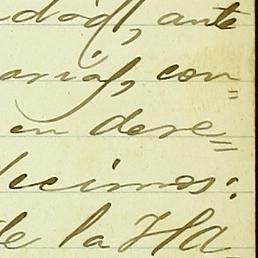 dad, ante
arias, con=
en dere=
decimos:
de la Ha